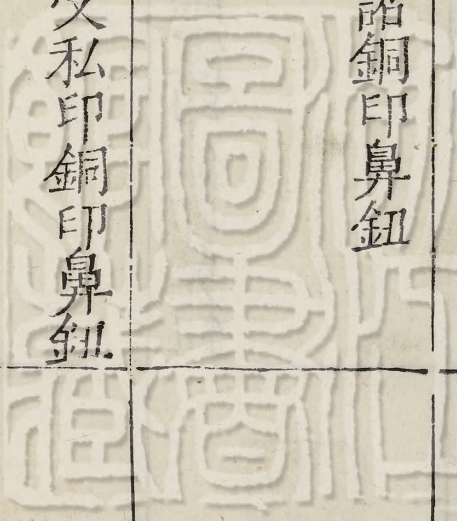 銅印鼻鈕
私印銅印鼻鈕
圖書